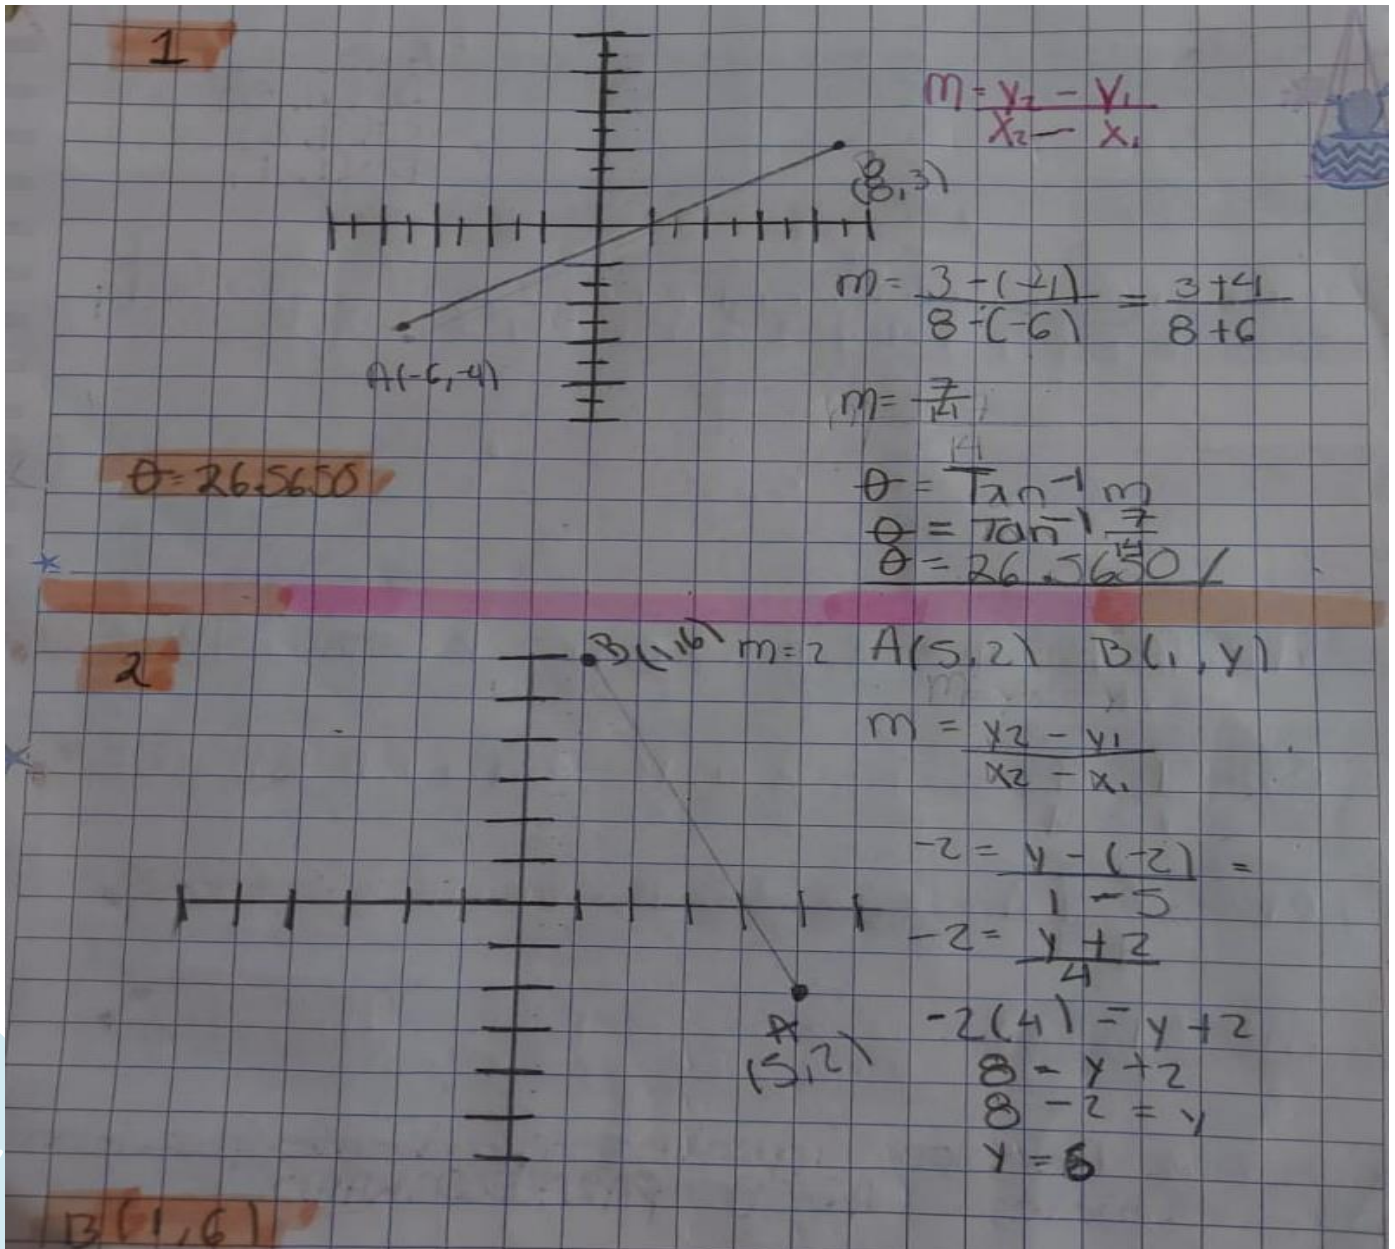 1
m = y₂ - y₁
x₂ - x₁
B
(8, 3)
m = 3 - (-4) = 3 + 4
8 - (-6) 8 + 6
A(-6, -4)
m = 7
14
14
θ = 26.5650
θ = Tan⁻¹ m
θ = Tan⁻¹ 7
14
θ = 26.5650
2
B(1, 6) m = 2 A(5, 2) B(1, y)
m = y2 - y1
x2 - x1
-2 = y - (-2) =
1 - 5
-2 = y + 2
4
A
(5, 2)
-2(4) = y + 2
8 - y + 2
8 - 2 = y
y = 6
B(1, 6)